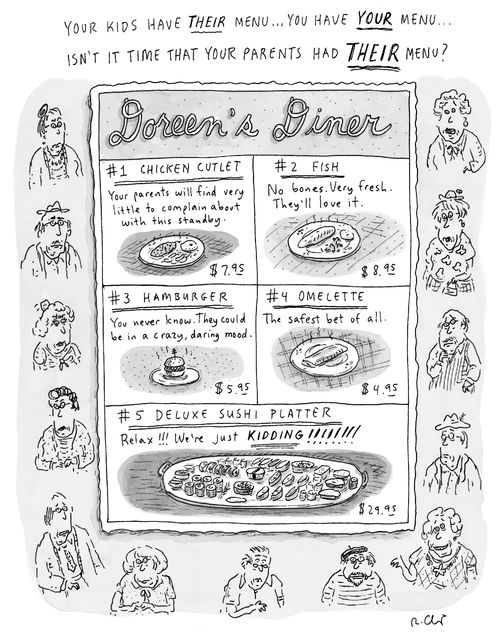 YOUR KIDS HAVE THEIR MENU... YOU HAVE YOUR MENU...
ISN'T IT TIME THAT YOUR PARENTS HAD THEIR MENU?
Doreen's Diner
#1 CHICKEN CUTLET
Your parents will find very
little to complain about
with this standby.
$7.95
#2 FISH
No bones. Very fresh.
They'll love it.
$8.95
#3 HAMBURGER
You never know. They could
be in a crazy, daring mood.
$5.95
#4 OMELETTE
The safest bet of all.
$4.95
#5 DELUXE SUSHI PLATTER
Relax!!! We're just KIDDING!!!!!!!!
$29.95
R. Chst